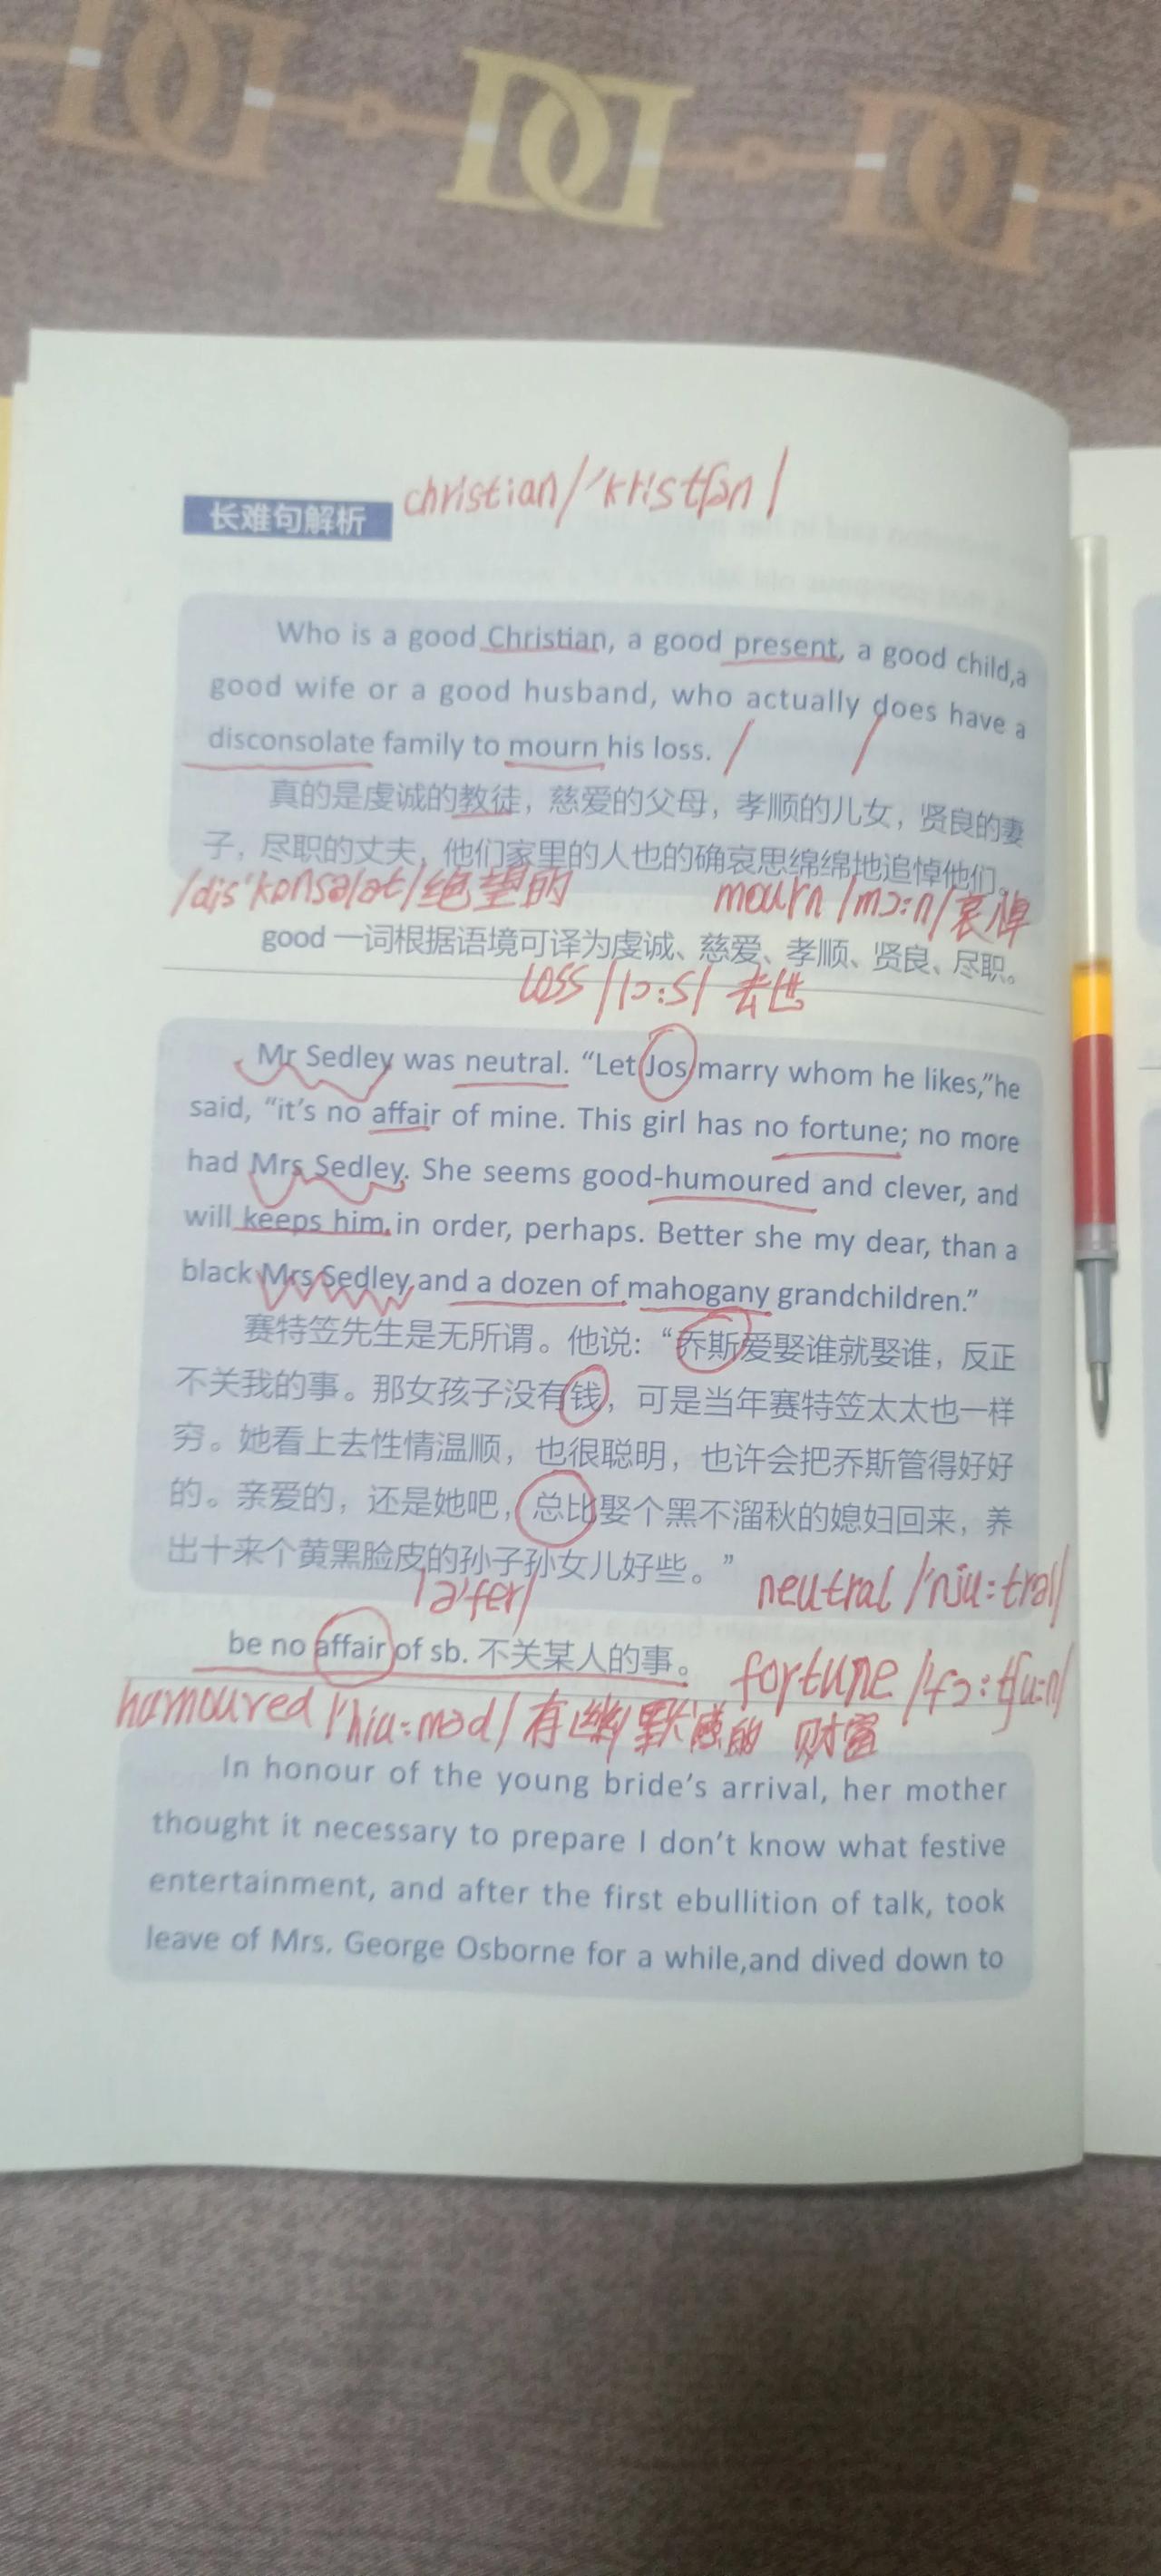 christian/'kristʃən/
长难句解析
Who is a good Christian, a good present, a good child,a
good wife or a good husband, who actually does have a
disconsolate family to mourn his loss.
真的是虔诚的教徒，慈爱的父母，孝顺的儿女，贤良的妻
子，尽职的丈夫，他们家里的人也的确哀思绵绵地追悼他们。
/dis'kɒnsələt/绝望的 mourn /mɔ:n/哀悼
good 一词根据语境可译为虔诚、慈爱、孝顺、贤良、尽职。
loss /lɔ:s/ 去世
Mr Sedley was neutral. “Let Jos marry whom he likes,”he
said, “it’s no affair of mine. This girl has no fortune; no more
had Mrs Sedley. She seems good-humoured and clever, and
will keeps him in order, perhaps. Better she my dear, than a
black Mrs Sedley,and a dozen of mahogany grandchildren.”
赛特笠先生是无所谓。他说：“乔斯爱娶谁就娶谁，反正
不关我的事。那女孩子没有钱，可是当年赛特笠太太也一样
穷。她看上去性情温顺，也很聪明，也许会把乔斯管得好好
的。亲爱的，还是她吧，总比娶个黑不溜秋的媳妇回来，养
出十来个黄黑脸皮的孙子孙女儿好些。”
/ə'fer/ neutral /'nju:trəl/
be no affair of sb. 不关某人的事。 fortune /'fɔ:tʃu:n/
humoured /'hju:məd/有幽默感的 财富
In honour of the young bride’s arrival, her mother
thought it necessary to prepare I don’t know what festive
entertainment, and after the first ebullition of talk, took
leave of Mrs. George Osborne for a while,and dived down to